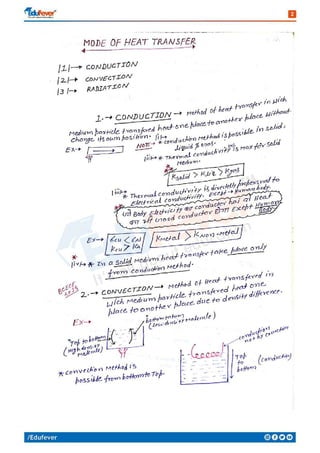 Edufever
2
MODE OF HEAT TRANSFER
|1|→ CONDUCTION
|2|→ CONVECTION
|3|→ RADIATION
1.→ CONDUCTION → Method of heat transfer in which
Medium particle transfered heat one place to another place without
change its own position.
NOTE→ * Conduction Method is possible in solid,
liquid & gas.
Ex→
* Thermal conductivity is max for solid
Medium.
Ksolid > KLiq > Kgas
* Thermal conductivity is directly proportional to
electrical conductivity, except → Human body.
Body Electricity
conductor
Heat
Good conductor
Except Human
Body
Ex→
KMetal > KNon-Metal
* In a solid Medium heat transfer take place only
from conduction Method.
2.→ CONVECTION → Method of Heat transferd in
which Medium particle transfered heat one
place to another place due to density difference.
Ex→
bottom to Top
(Low density Molecule)
Top to bottom
(High density
Molecule)
conduction
not by convection
Top
to
bottom
(conduction)
* Convection Method is
possible from bottom to Top.
/Edufever